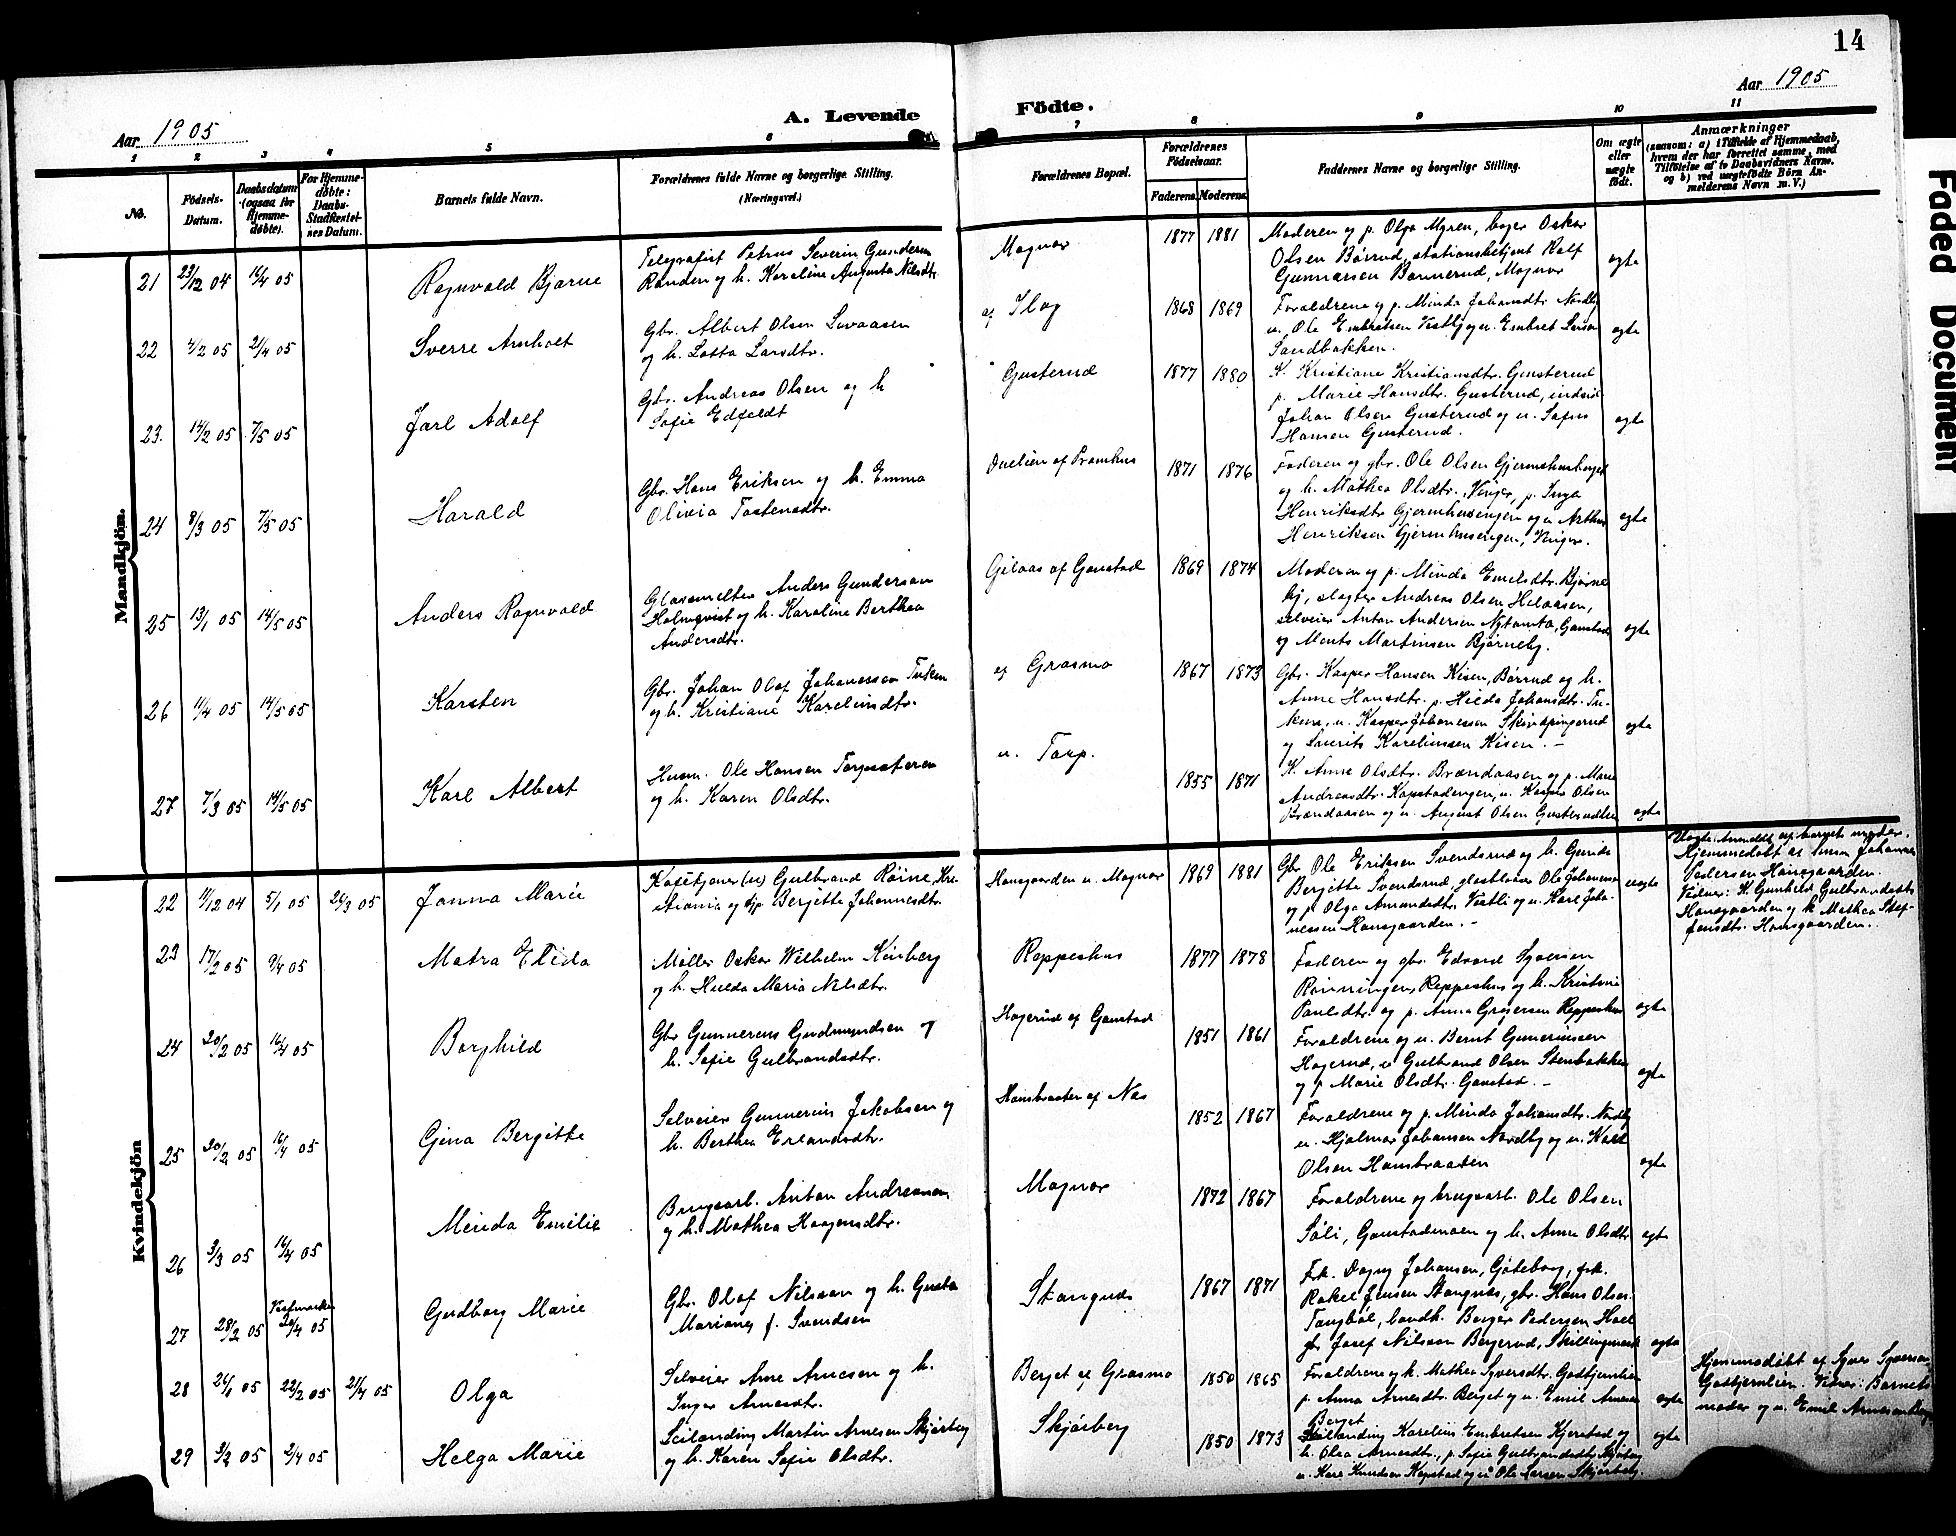 14
Aar 1905
A. Levende
Födte.
Aar 1905
1 2 3 4 5 6 7 8 9 10 11
No.
Födsels-
Datum.
Daabsdatum
(ogsaa for
Hjemme-
døbte).
For Hjemme-
døbte:
Daabs-
Stadfæstel-
ses Datum.
Barnets fulde Navn.
Forældrenes fulde Navne og borgerlige Stilling.
(Næringsvei.)
Forældrenes Bopæl.
Forældrenes
Födselsaar.
Faderens. Moderens.
Faddernes Navne og borgerlige Stilling.
Om ægte
eller
uægte
födt.
Anmærkninger
(saasom: a) i Tilfælde af Hjemmedaab,
hvem der har forrettet samme, med
Tilföielse af to Daabsvidners Navne.
og b) ved uægtefödte Börn An-
melderens Navn m. V.)
Mandkjön.
21 23/12 04 16/4 05 Ragnvald Bjarne
Telegrafist Petrus Severin Gundersen
Randen og h. Karoline Augusta Nilsdtr.
Magnor 1877 1881
Moderen og p. Olga Myren, bager Oskar
Olsen Børrud, stationsbetjent Ralf
Gunnarsen Bonnerud, Magnor
ægte
22 4/2 05 21/4 05 Sverre Arnholt
Gbr. Albert Olsen Levaasen
og h. Lotta Larsdtr.
af Ilag 1868 1869
Forældrene og p. Minda Johansdtr. Nordby
u. Ole Embretsen Vestby og u. Embret Larsen
Sandbakken.
ægte
23. 14/2 05 7/5 05 Jarl Adolf
Gbr. Andreas Olsen og h
Sofie Edfeldt
Gusterud 1877 1880
K. Kristiane Kristiansdtr. Gusterud
p. Marie Hansdtr. Gusterud, inderst
Johan Olsen Gusterud og u. Sofus
Hansen Gusterud.
ægte
24 8/3 05 7/5 05 Harald
Gbr. Hans Eriksen og h. Emma
Olivia Tostensdtr.
1871 1876
Faderen og gbr. Ole Olsen Gjermshusberget
og h. Mathea Olsdtr. Vinger, p. Inga
Henriksdtr Gjermhusengen og u. Arthur
Henriksen Gjermhusengen, Vinger.
ægte
25 13/1 05 14/5 05 Anders Ragnvald
Glassmelter Anders Gundersen
Holmqvist og h. Karoline Berthea
Andersdtr.
Gilaas af Gaustad 1869 1874
Moderen og p. Minda Emilsdtr. Bjørne
by, slagter Andreas Olsen Helaasen,
selveier Anton Andersen Nytomta, Gaustad
og Ments Martinsen Bjørneby.
ægte
26 11/4 05 14/5 05 Karsten
Gbr. Johan Olaf Johanessen Tuken
og h. Kristiane Karelinsdtr.
af Grasmo 1867 1873
Gbr. Kasper Hansen Kisen, Børrud og h.
Anne Hansdtr. p. Hilda Johansdtr. Tu-
ken, u. Kasper Johanessen Skindpungerud
og Laurits Karelinssen Kisen. –
ægte
27 7/3 05 14/5 05 Karl Albert
Husm. Ole Hansen Torpsæteren
og h. Karen Olsdtr.
u. Torp. 1855 1871
K. Anne Olsdtr. Brændaasen og p. Marie
Andreasdtr. Kapstadengen, u. Kasper Olsen
Brændaasen og u. August Olsen Gusterudtien
ægte
Kvindekjön
22 11/12 04 5/1 05 26/3 05 Janna Marie
Kafétjener (u) Gulbrand Røine, Kri-
stiania og pp. Bergitte Johannesdtr.
Hansgaarden u. Magnor 1869 1881
Gbr. Ole Eriksen Svendsrud og h. Gunda
Bergitte Svendsrud, glasblæser Ole Johannesen
og p. Olga Amundsdtr. Vestli og u. Karl Joha-
nessen Hansgaarden. –
uægte
Uægte. Anmeldt af barnets mor.
Hjemmedøbt af husm Johannes
Pedersen Hansgaarden.
Vidner: K. Gunhild Gulbrandsdtr.
Hansgaarden og k. Mathea Stef-
fensdtr. Hansgaarden.
23 17/2 05 9/4 05 Matra Elida
Møller Oskar Wilhelm Kinberg
og h. Hulda Maria Nilsdtr.
Reppeshus 1877 1878
Faderen og gbr. Edvard Syversen
Rønningen, Reppeshus og h. Kristine
Paulsdtr. og p. Anna Gregersen Reppeshus
ægte
24 20/2 05 16/4 05 Borghild
Gbr Gunnerius Gudmundsen og
h. Sofie Gulbrandsdtr.
Hagerud af Gaustad 1851 1861
Forældrene og u. Bernt Gunneriussen
Hagerud, u Gulbrand Olsen Stenbakken
og p Marie Olsdtr. Gaustad. –
ægte
25 20/2 05 16/4 05 Gina Bergitte
Selveier Gunnerius Jakobsen og
h. Berthea Erlandsdtr.
Hansbraaten af Nas 1852 1867
Forældrene og p. Minda Johansdtr. Nordby
u. Hjalmar Johansen Nordby og u. Karl
Olsen Hansbraaten
ægte
26 3/3 05 16/4 05 Minda Emilie
Brugsarb. Anton Andreassen
og h. Mathea Haagensdtr.
Magnor 1872 1867
Forældrene og brugsarb. Ole Olsen
Søli, Gaustadmoen og h. Anne Olsdtr
ægte
27 28/2 05 Vestmarken 30/4 05 Gudborg Marie
Gbr. Olof Nilsson og h. Gusta
Marianes f. Svendsen
Stangnes 1867 1871
Frk. Dagny Johansen, Göteborg, frk.
Rakel Jensen Stangnæs, gbr. Hans Olsen
Tangbøl, landh. Berger Pedersen Hoel
gbr Josef Nilsson Bergerud, Skillingmark
ægte
28 26/1 05 22/2 05 21/4 05 Olga
Selveier Arne Arnesen og h.
Inger Arnesdtr.
Berget af Grasmo 1850 1865
Forældrene og k. Mathea Syversdtr. Godtjernlien
p. Anna Arnesdtr. Berget og u. Emil Arnesen
Berget
ægte
Hjemmedøbt af Syver Syversen
Godtjernlien. Vidner: Barnets
moder og u. Emil Arnesen Berget
29 3/2 05 2/4 05 Helga Marie
Leilænding Martin Arnesen Skjørberg
og h. Karen Sofie Olsdtr.
Skjørberg 1850 1873
Leilænding Karelius Embretsen Kjerstad og
h. Olea Arnesdtr., p. Sofie Gulbrandsdtr. Skjørberg
u. Karl Knudsen Kapstad og u Ole Larsen Skjørberg.
ægte
Faded Document